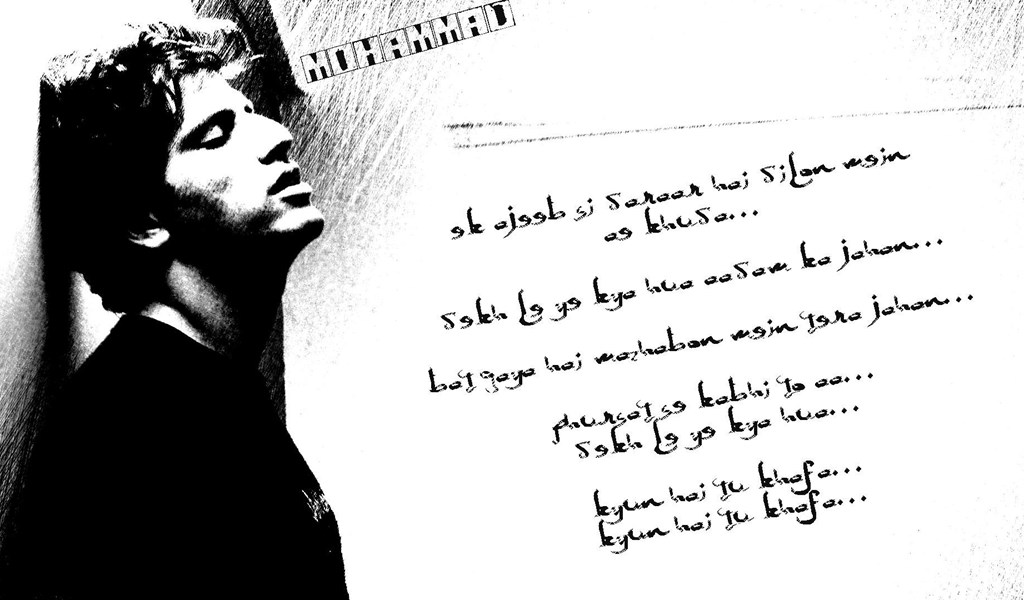 MUHAMMAD
ek ajeeb si daraar hai dilon mein
ae khuda...
dekh le ye kya hua aadam ka jahan...
bat gaya hai mazhabon mein tera jahan...
phursat se kabhi to aa...
dekh le ye kya hua...
kyun hai tu khafa...
kyun hai tu khafa...